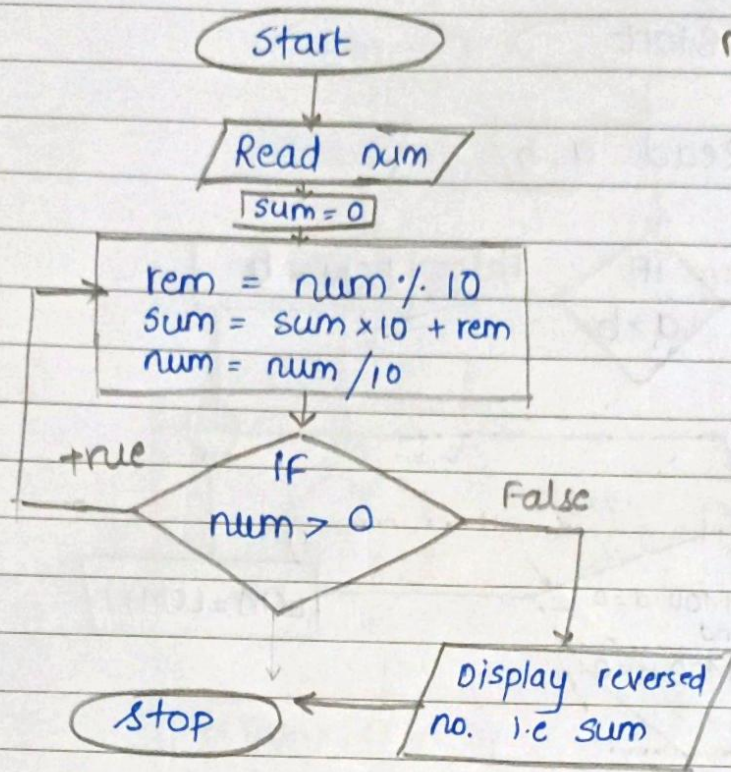 Start
Read num
sum = 0
rem = num % 10
sum = sum × 10 + rem
num = num / 10
true
if
num > 0
False
Display reversed
no. i.e sum
Stop